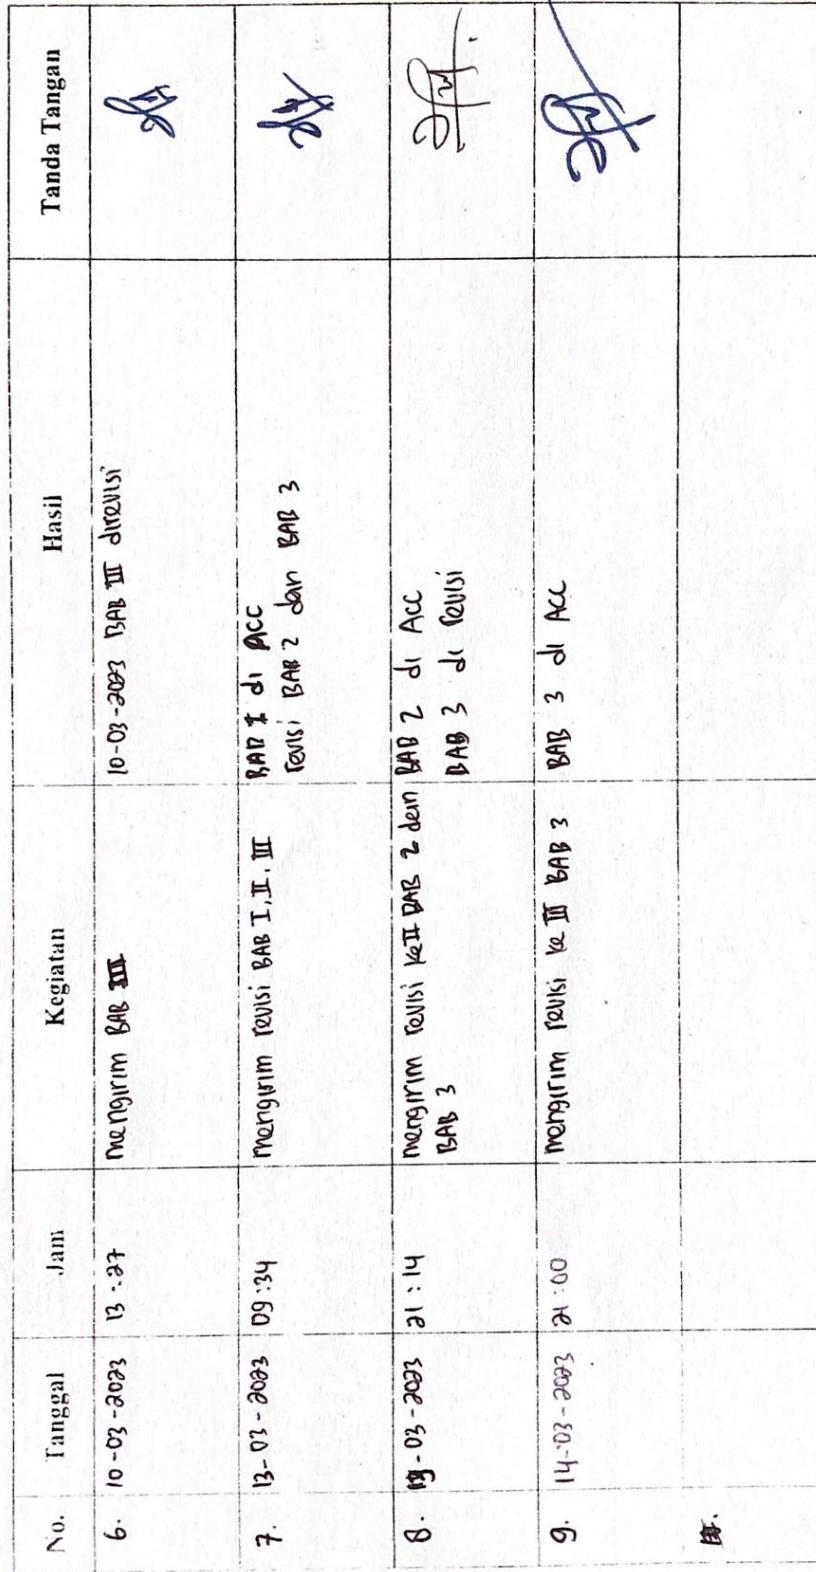 No. Tanggal Jam Kegiatan Hasil Tanda Tangan
6. 10-03-2023 13:27 mengirim BAB III 10-03-2023 BAB III direvisi
7. 13-03-2023 09:34 mengirim revisi BAB I, II, III BAB I di ACC
revisi BAB 2 dan BAB 3
8. -03-2023 21:14 mengirim revisi ke II BAB 2 dan BAB 2 di ACC
BAB 3 BAB 3 di revisi
9. 14-03-2023 21:00 mengirim revisi ke III BAB 3 BAB 3 di ACC